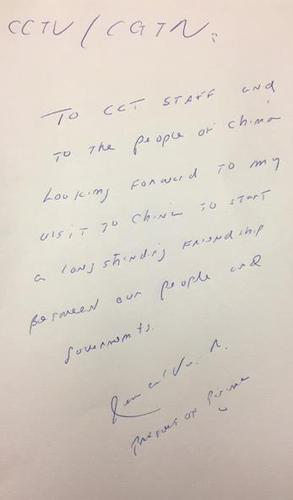 CCTV / CGTN:
To CCT STAFF and
To the people of China
Looking Forward To my
visit To China To start
a long standing Friendship
between our people and
governments.
President of